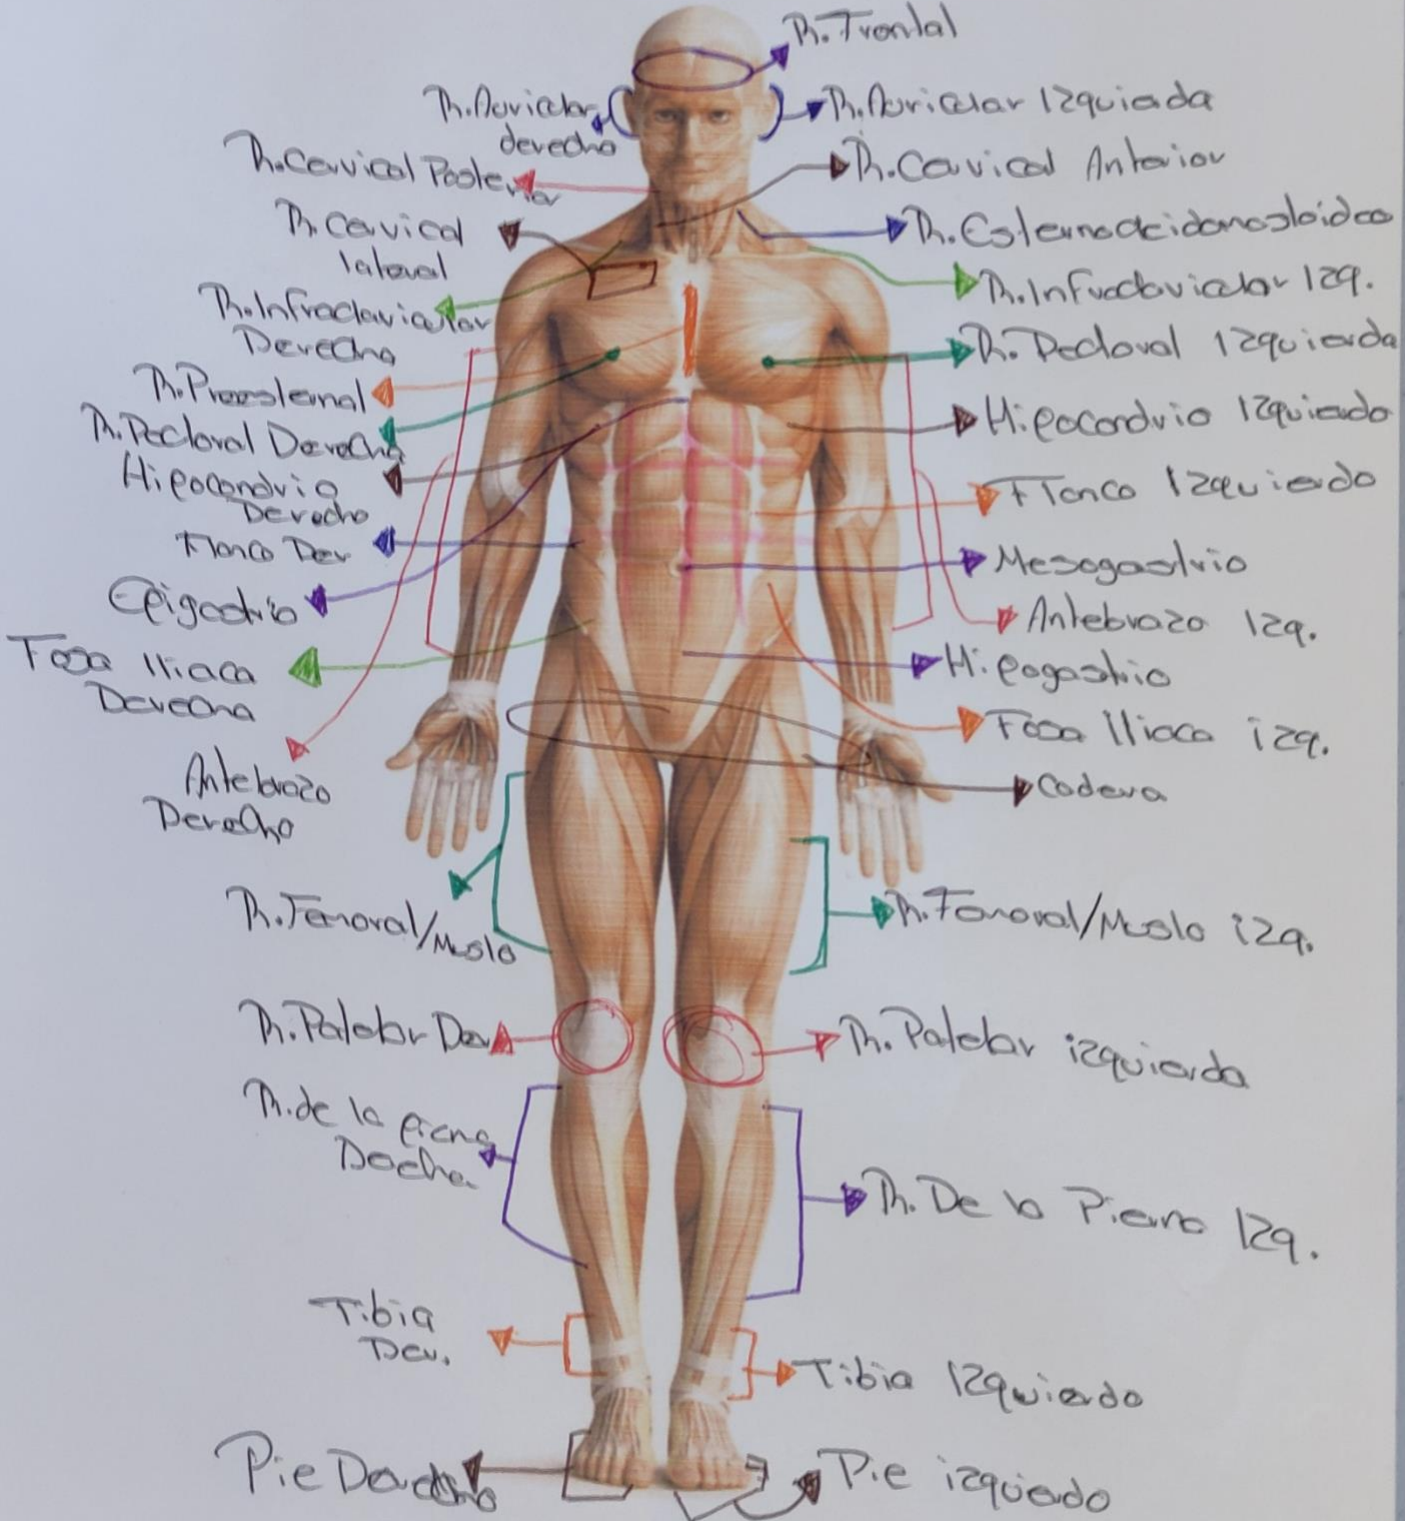 R. Frontal
R. Auricular
derecho
R. Auricular Izquierda
R. Cervical Posterior
R. Cervical Anterior
R. Cervical
lateral
R. Esternocleidomastoideo
R. Infraclavicular
Derecha
R. Infraclavicular Izq.
R. Preesternal
R. Pectoral Izquierda
R. Pectoral Derecha
Hipocondrio Izquierdo
Hipocondrio
Derecho
Flanco Izquierdo
Flanco Der
Mesogastrio
Epigastrio
Antebrazo Izq.
Fosa Iliaca
Derecha
Hipogastrio
Fosa Iliaca izq.
Antebrazo
Derecho
Cadera
R. Femoral/Muslo
R. Femoral/Muslo izq.
R. Patelar Der
R. Patelar izquierda
R. de la pierna
R. De la Pierna Izq.
Tibia
Der.
Tibia Izquierdo
Pie Derecho
Pie izquierdo